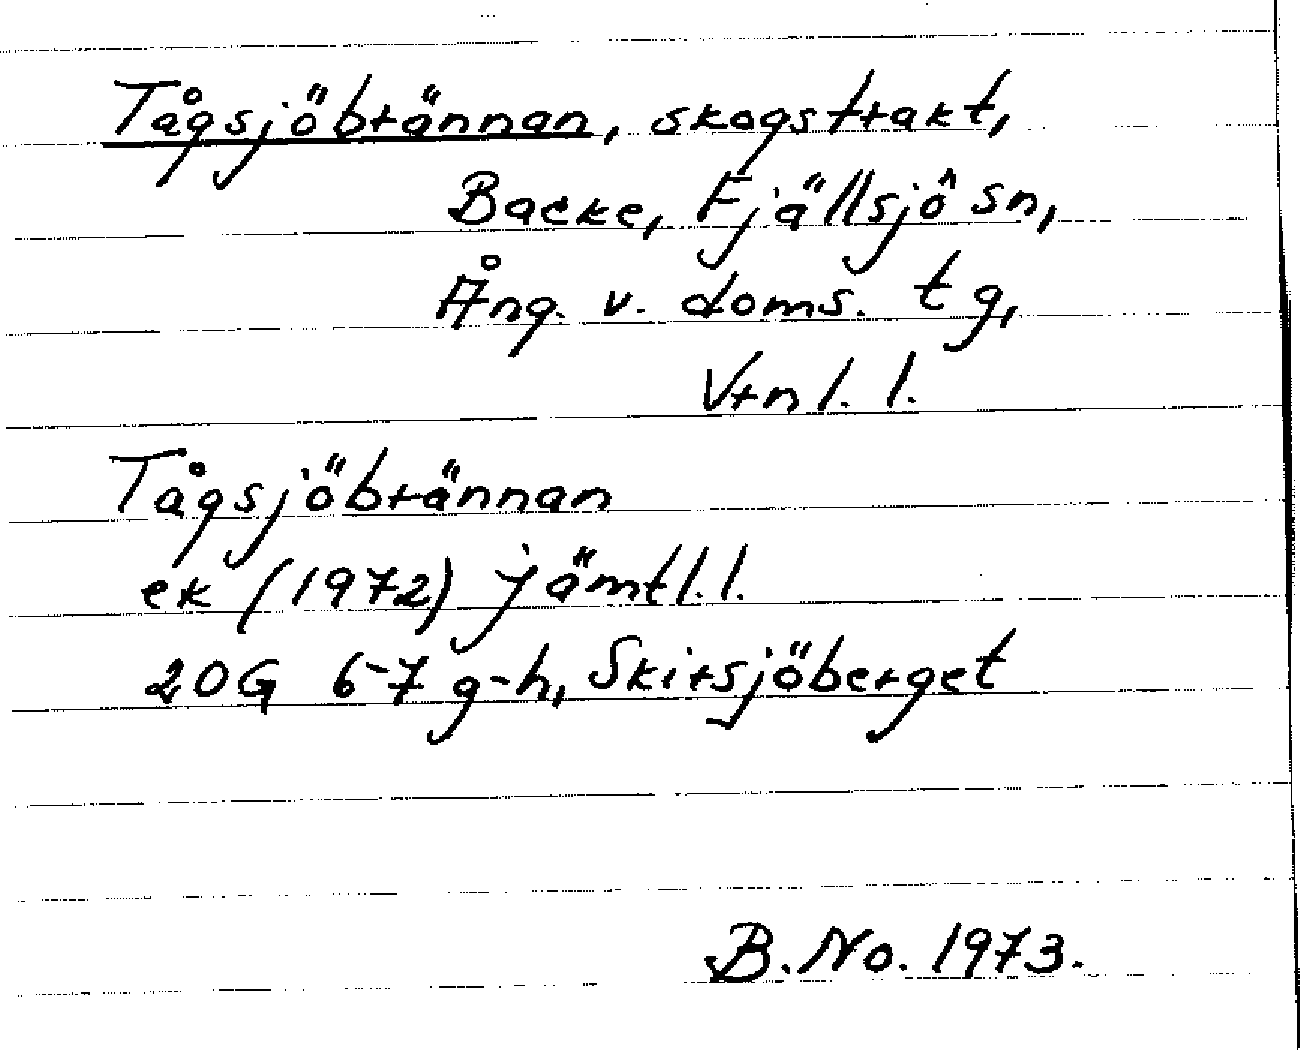 Tågsjöbrännan, skogstrakt,
Backe, Fjällsjö sn,
Ång. v. doms. tg,
Vrnl. l.
Tågsjöbrännan
ek (1972) Jämtl. l.
20G 6-7 g-h, Skirsjöberget
B. No. 1973.